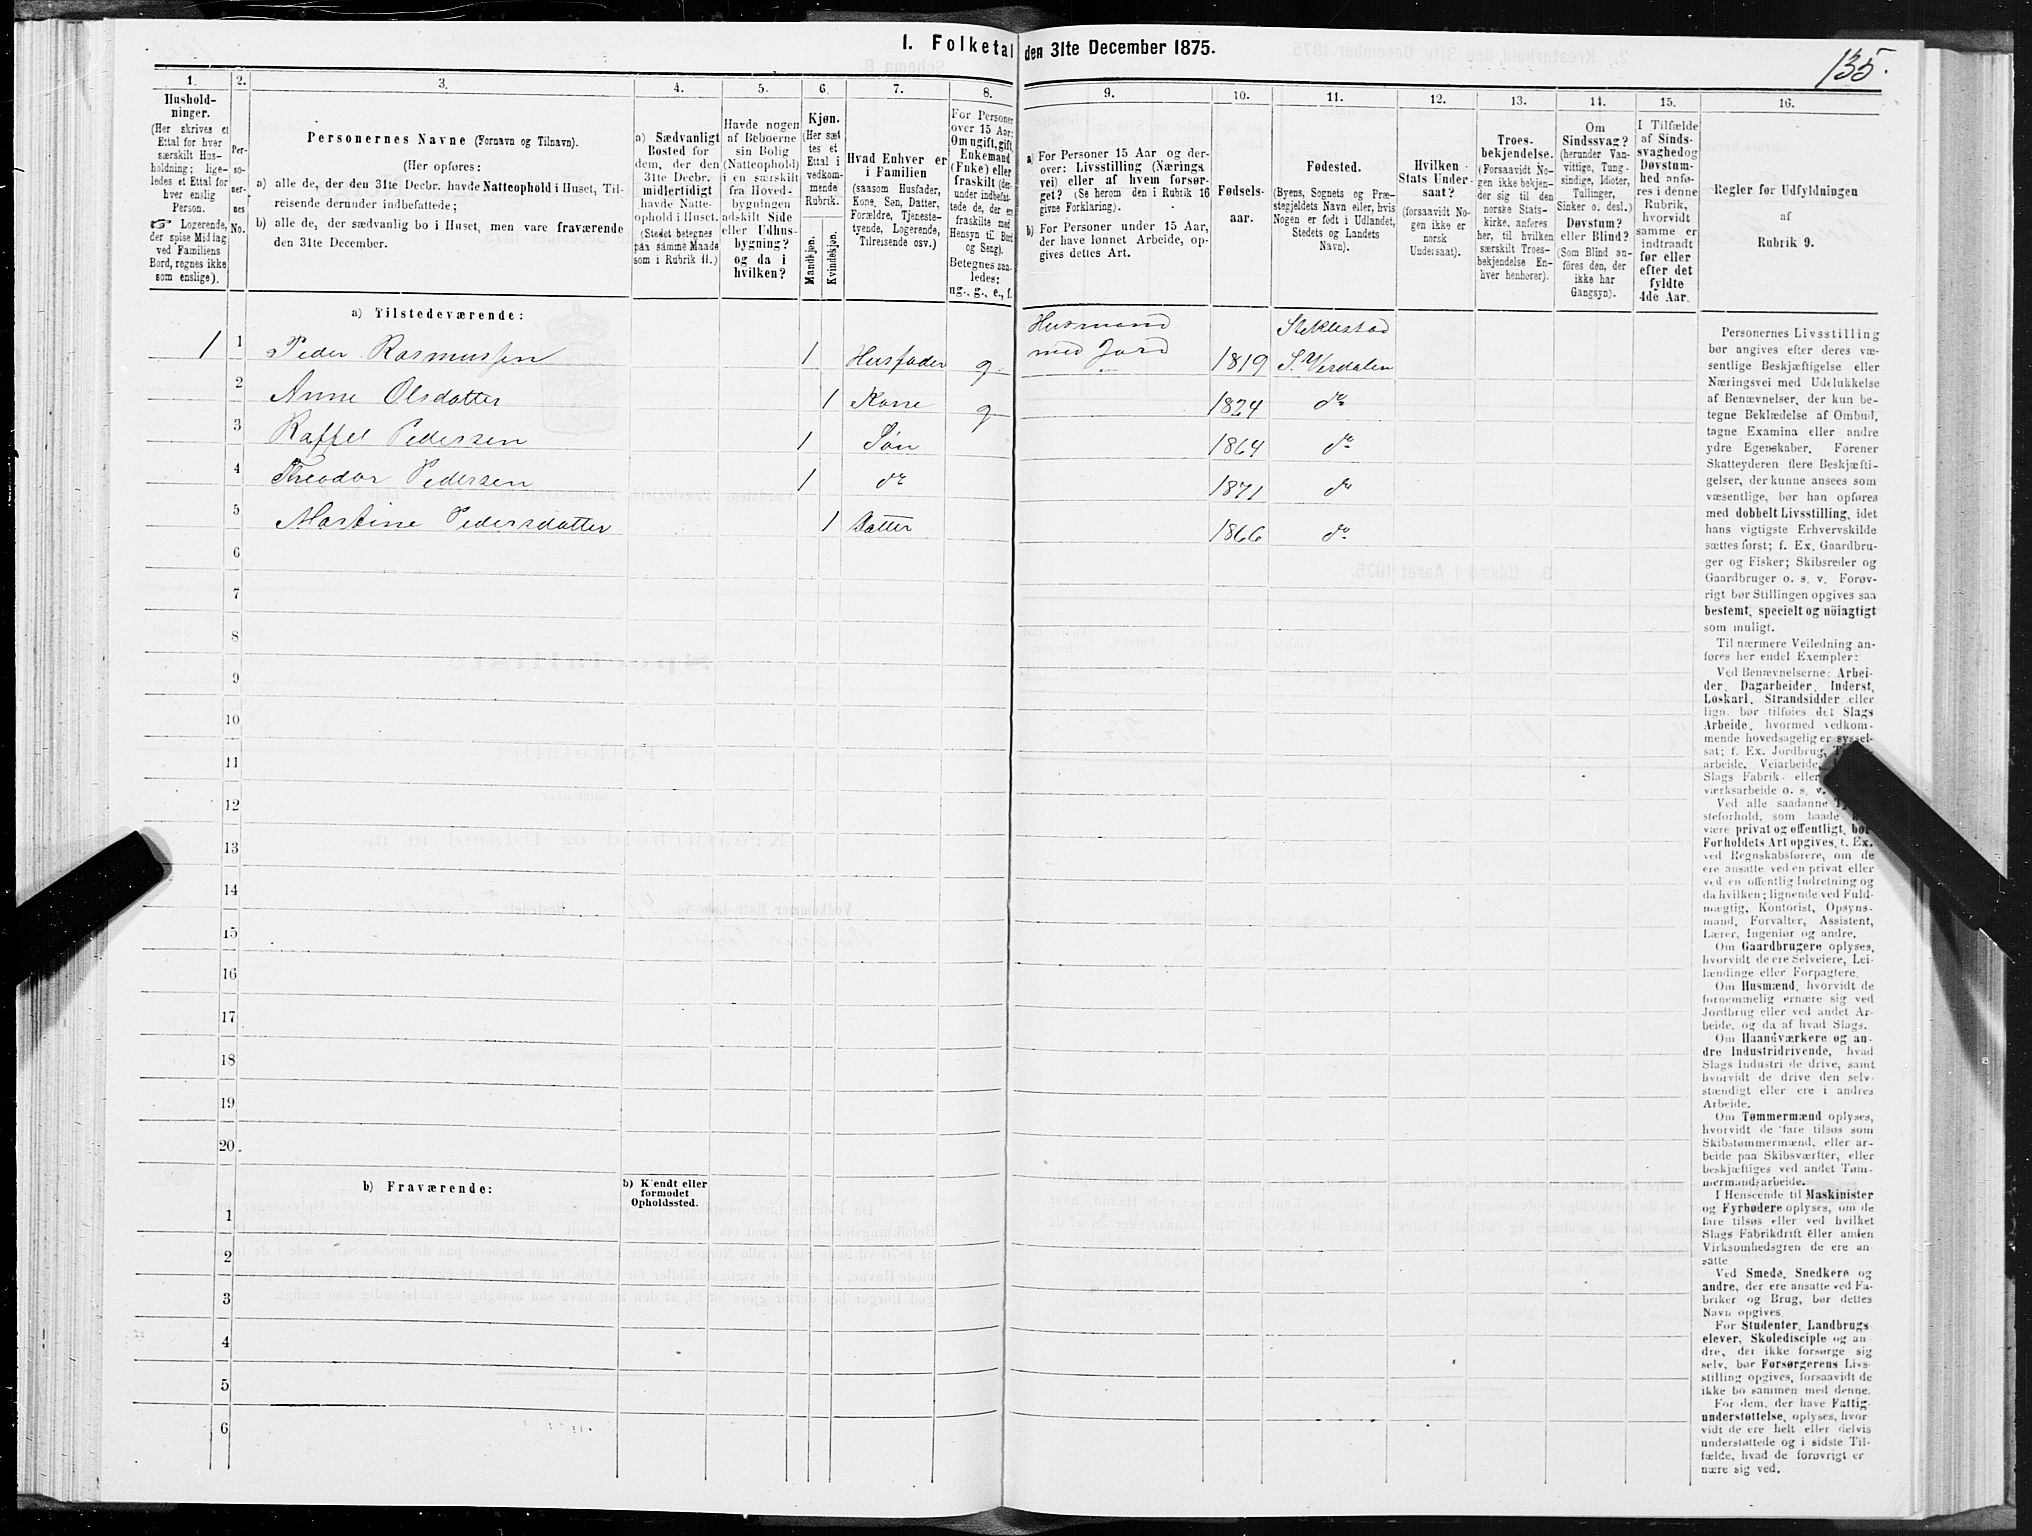 135.
I. Folketal den 31te December 1875.
1.
Hushold-
ninger.
(Her skrives et
Ettal for hver
særskilt Hus-
holdning; lige-
ledes et Ettal for
hver enslig
Person.
☞ Logerende,
der spise Middag
ved Familiens
Bord, regnes ikke
som enslige).
2.
Per-
so-
ner-
nes
No.
3.
Personernes Navne (Fornavn og Tilnavn).
(Her opføres:
a) alle de, der den 31te Decbr. havde Natteophold i Huset, Til-
reisende derunder indbefattede;
b) alle de, der sædvanlig bo i Huset, men vare fraværende
den 31te December.
4.
a) Sædvanligt
Bosted for
dem, der den
31te Decbr.
midlertidigt
havde Natte-
ophold i Huset.
(Stedet betegnes
paa samme Maade
som i Rubrik 11.)
5.
Havde nogen
af Beboerne
sin Bolig
(Natteophold)
i en særskilt
fra Hoved-
bygningen
adskilt Side
eller Udhus-
bygning?
og da i
hvilken?
6.
Kjøn.
(Her sæt
tes et
Ettal i
vedkom-
mende
Rubrik.
Mandkjøn.
Kvindekjøn.
7.
Hvad Enhver er
i Familien
(saasom Husfader,
Kone, Søn, Datter,
Forældre, Tjeneste-
tyende, Logerende,
Tilreisende osv.)
8.
For Personer
over 15 Aar:
Om ugift, gift,
Enkemand
(Enke) eller
fraskilt (der-
under indbefat-
tede de, der ere
fraskilte med
Hensyn til Bord
og Seng).
Betegnes saa-
ledes:
ug., g., e., f.
9.
a) For Personer 15 Aar og der-
over: Livsstilling (Nærings
vei) eller af hvem forsør-
get? (Se herom den i Rubrik 16
givne Forklaring).
b) For Personer under 15 Aar,
der have lønnet Arbeide, op-
gives dettes Art.
10.
Fødsels-
aar.
11.
Fødested.
(Byens, Sognets og Præ-
stegjeldets Navn eller, hvis
Nogen er født i Udlandet,
Stedets og Landets
Navn).
12.
Hvilken
Stats Under-
saat?
(forsaavidt No-
gen ikke er
norsk
Undersaat).
13.
Troes-
bekjendelse.
(Forsaavidt No-
gen ikke bekjen-
der sig til den
norske Stats-
kirke, anføres
her, til hvilken
særskilt Troes-
bekjendelse En-
hver henhører).
14.
Om
Sindssvag?
(herunder Van-
vittige, Tung-
sindige, Idioter,
Tullinger,
Sinker o. desl.)
Døvstum?
eller Blind?
(Som Blind an-
føres den, der
ikke har
Gangsyn).
15.
I Tilfælde
af Sinds-
svaghed og
Døvstum-
hed anfø-
res i denne
Rubrik,
hvorvidt
samme er
indtraadt
før eller
efter det
fyldte
4de Aar.
16.
Regler for Udfyldningen
af
Rubrik 9.
a) Tilstedeværende:
1 1 Peder Rasmussen 1 Husfader g. Husmand med Jord 1819 Stiklestad S. Verdalen
2 Anne Olsdatter 1 Kone g 1824 do
3 Raffel Pedersen 1 Søn 1864 do
4 Theodor Pedersen 1 do 1871 do
5 Martine Pedersdatter 1 Datter 1866 do
6
7
8
9
10
11
12
13
14
15
16
17
18
19
20
b) Fraværende:
b) Kjendt eller
formodet
Opholdssted.
1
2
3
4
5
6
Personernes Livsstilling
bør angives efter deres væ-
sentlige Beskjæftigelse eller
Næringsvei med Udelukkelse
af Benævnelser, der kun be-
tegne Beklædelse af Ombud,
tagne Examina eller andre
ydre Egenskaber. Forener
Skatteyderen flere Beskjæfti-
gelser, der kunne ansees som
væsentlige, bør han opføres
med dobbelt Livsstilling, idet
hans vigtigste Erhvervskilde
sættes først; f. Ex. Gaardbru-
ger og Fisker; Skibsreder og
Gaardbruger o. s. v. Forøv-
rigt bør Stillingen opgives saa
bestemt, specielt og nøiagtigt
som muligt.
Til nærmere Veiledning an-
føres her endel Exempler:
Ved Benævnelserne: Arbei-
der, Dagarbeider, Inderst,
Løskarl, Strandsidder eller
lign. bør tilføies det Slags
Arbeide, hvormed vedkom-
mende hovedsagelig er syssel-
sat; f. Ex. Jordbrug,
arbeide, Veiarbeide,
Slags Fabrik- eller
værksarbeide o. s. v.
Ved alle saadanne
steforhold, som baade
være privat og offentligt, bør
Forholdets Art opgives, f. Ex.
ved Regnskabsførere, om de
ere ansatte ved en privat eller
ved en offentlig Indretning og
da hvilken; lignende ved Fuld-
mægtig, Kontorist, Opsyns-
mand, Forvalter, Assistent,
Lærer, Ingeniør og andre.
Om Gaardbrugere oplyses,
hvorvidt de ere Selveiere, Lei-
lændinge eller Forpagtere.
Om Husmænd, hvorvidt de
fornemmelig ernære sig ved
Jordbrug eller ved andet Ar-
beide, og da af hvad Slags.
Om Haandværkere og an-
dre Industridrivende, hvad
Slags Industri de drive, samt
hvorvidt de drive den selv-
stændigt eller ere i andres
Arbeide.
Om Tømmermænd oplyses,
hvorvidt de fare tilsøs som
Skibstømmermænd, eller ar-
beide paa Skibsværfter, eller
beskjæftiges ved andet Tøm-
mermandsarbeide.
I Henseende til Maskinister
og Fyrbødere oplyses, om de
fare tilsøs eller ved hvilket
Slags Fabrikdrift eller anden
Virksomhedsgren de ere an-
satte
Ved Smede, Snedkere og
andre, der ere ansatte ved Fa-
briker og Brug, bør dettes
Navn opgives.
For Studenter, Landbrugs
elever, Skoledisciple og an-
dre, der ikke forsørge sig
selv, bør Forsørgerens Livs-
stilling opgives, forsaavidt de
ikke bo sammen med denne.
For dem, der have Fattig-
understøttelse, oplyses, hvor
vidt de ere helt eller delvis
understøttede og i sidste Til-
fælde, hvad de forøvrigt er
nære sig ved.